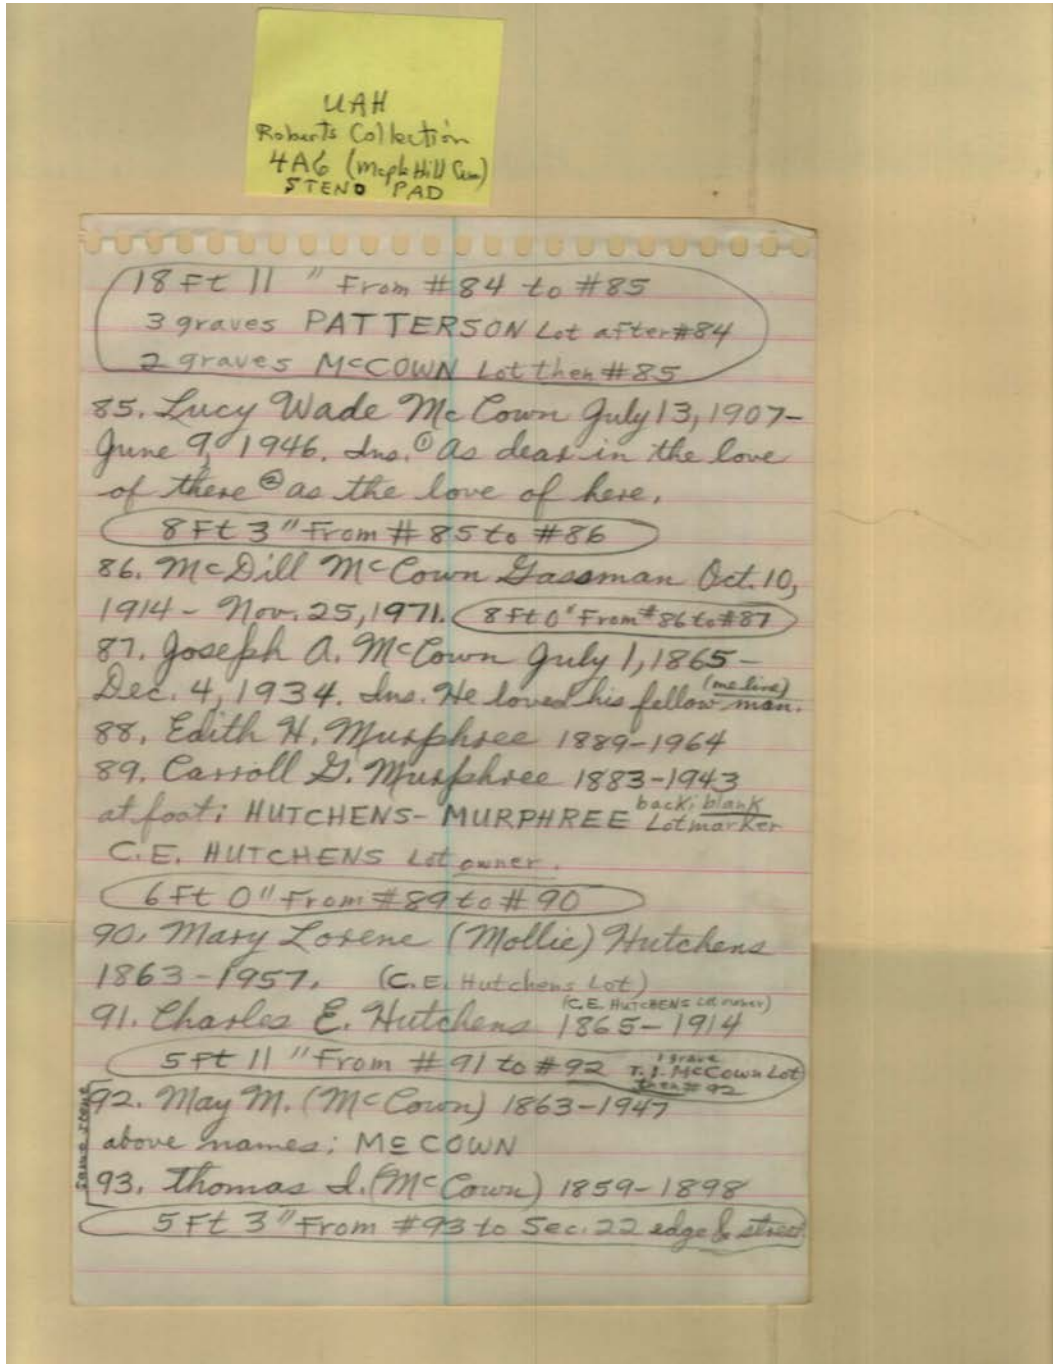 UAH
Roberts Collection
4A6 (Maple Hill Cem)
STENO PAD
18 Ft 11 " From #84 to #85
3 graves PATTERSON Lot after #84
2 graves McCOWN Lot then #85
85. Lucy Wade McCown July 13, 1907-
June 9, 1946. Ins. ① As dear in the love
of there ② as the love of here.
8 Ft 3" From #85 to #86
86. McDill McCown Gassman Oct. 10,
1914 - Nov. 25, 1971. 8 Ft 0" From #86 to #87
87. Joseph A. McCown July 1, 1865-
(one line)
Dec. 4, 1934. Ins. He loved his fellow man.
88. Edith H. Murphree 1889-1964
89. Carroll G. Murphree 1883-1943
back: blank
at foot: HUTCHENS-MURPHREE Lot marker
C.E. HUTCHENS Lot owner.
6 Ft 0" From #89 to #90
90. Mary Lorene (Mollie) Hutchens
1863-1957. (C.E. Hutchens Lot)
(C.E. HUTCHENS Lot owner)
91. Charles E. Hutchens 1865-1914
5 Ft 11 " From #91 to #92 1 grave T.I. McCown Lot then #92
same stone
92. May M. (McCown) 1863-1947
above names: McCOWN
93. Thomas I. (McCown) 1859-1898
5 Ft 3" From #93 to Sec. 22 edge & street